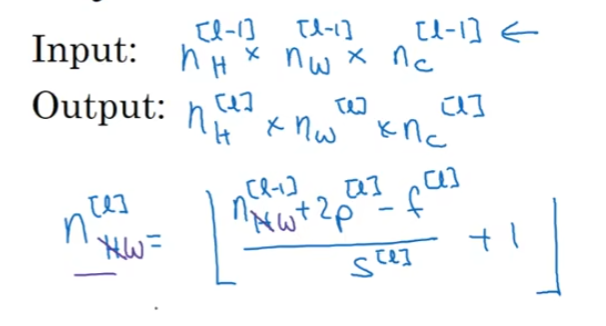 Input: n_H^[l-1] × n_W^[l-1] × n_C^[l-1] ←
Output: n_H^[l] × n_W^[l] × n_C^[l]
n_W^[l] = ⌊ (n_W^[l-1] + 2p^[l] - f^[l]) / s^[l] + 1 ⌋